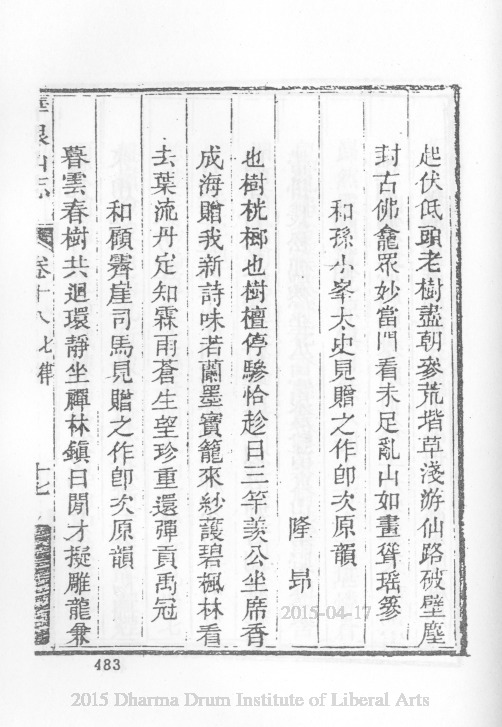 起伏低頭老樹盡朝參荒堦草淺游仙路破壁塵
封古佛龕眾妙當門看未足亂山如畫聳瑤篸
和孫小峯太史見贈之作卽次原韻
隆昻
也樹桄榔也樹檀停驂恰趁日三竿羨公坐席香
成海贈我新詩味若蘭墨寶籠來紗護碧楓林看
去葉流丹定知霖雨蒼生望珍重還彈貢禹冠
和顧霽崖司馬見贈之作卽次原韻
暮雲春樹共迴環靜坐禪林鎮日閒才擬雕龍兼
山志 卷十八 七律 十七
483
2015-04-17
2015 Dharma Drum Institute of Liberal Arts